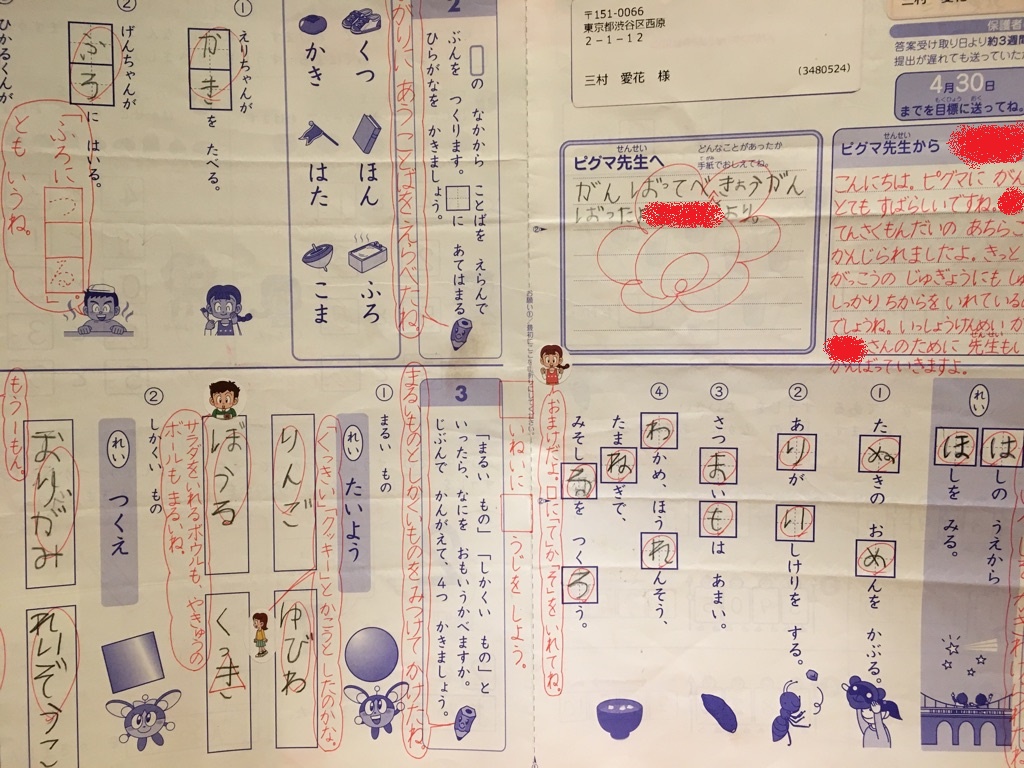 〒151-0066
東京都渋谷区西原
2-1-12
三村 愛花 様
(3480524)
保護者
答案受け取り日より約3週間
提出が遅れても送っていた
4月30日
までを目標に送ってね。
もくひょう おく
ピグマ先生へ
せんせい
どんなことがあったか
手紙でおしえてね。
がんばってべんきょうがん
ばった
より。
ピグマ先生から
せんせい
こんにちは。ピグマに
とても すばらしいですね。
てんさくもんだいの あちらこ
かんじられましたよ。きっと
がっこうの じゅぎょうにもし
しっかり ちからを いれている
でしょうね。いっしょうけんめい が
さんのために 先生も
せんせい
がんばっていきますよ。
れい
はしの うえから
ほしを みる。
①
たぬきの おめんを かぶる。
②
ありが いしけりを する。
③
さつまいもは あまい。
④
わかめ、ほうれんそう、
たまねぎで、
みそしるを つくろう。
おまけだよ。□に「て」か「そ」を いれてね。
いねいに□うじを しよう。
2
の なかから ことばを えらんで
ぶんを つくります。□に あてはまる
ひらがなを かきましょう。
くつ ほん ふろ
かき はた こま
①
えりちゃんが
かきを たべる。
②
げんちゃんが
ふろに はいる。
「ふろに つかる」
とも いうね。
ひかるくんが
3
「まるい もの」「しかくい もの」と
いったら、なにを おもいうかべますか。
じぶんで かんがえて、4つ かきましょう。
まるいものとしかくいものをみつけて かけたね。
①
まるい もの
れい たいよう
りんご
ゆびわ
ぼうる
くっき
「くっきい」「クッキー」とかこうとしたのかな。
サラダをいれるボウルも、やきゅうの
ボールも まるいね。
②
しかくい もの
れい つくえ
おりがみ
れいぞうこ
もう一もん。